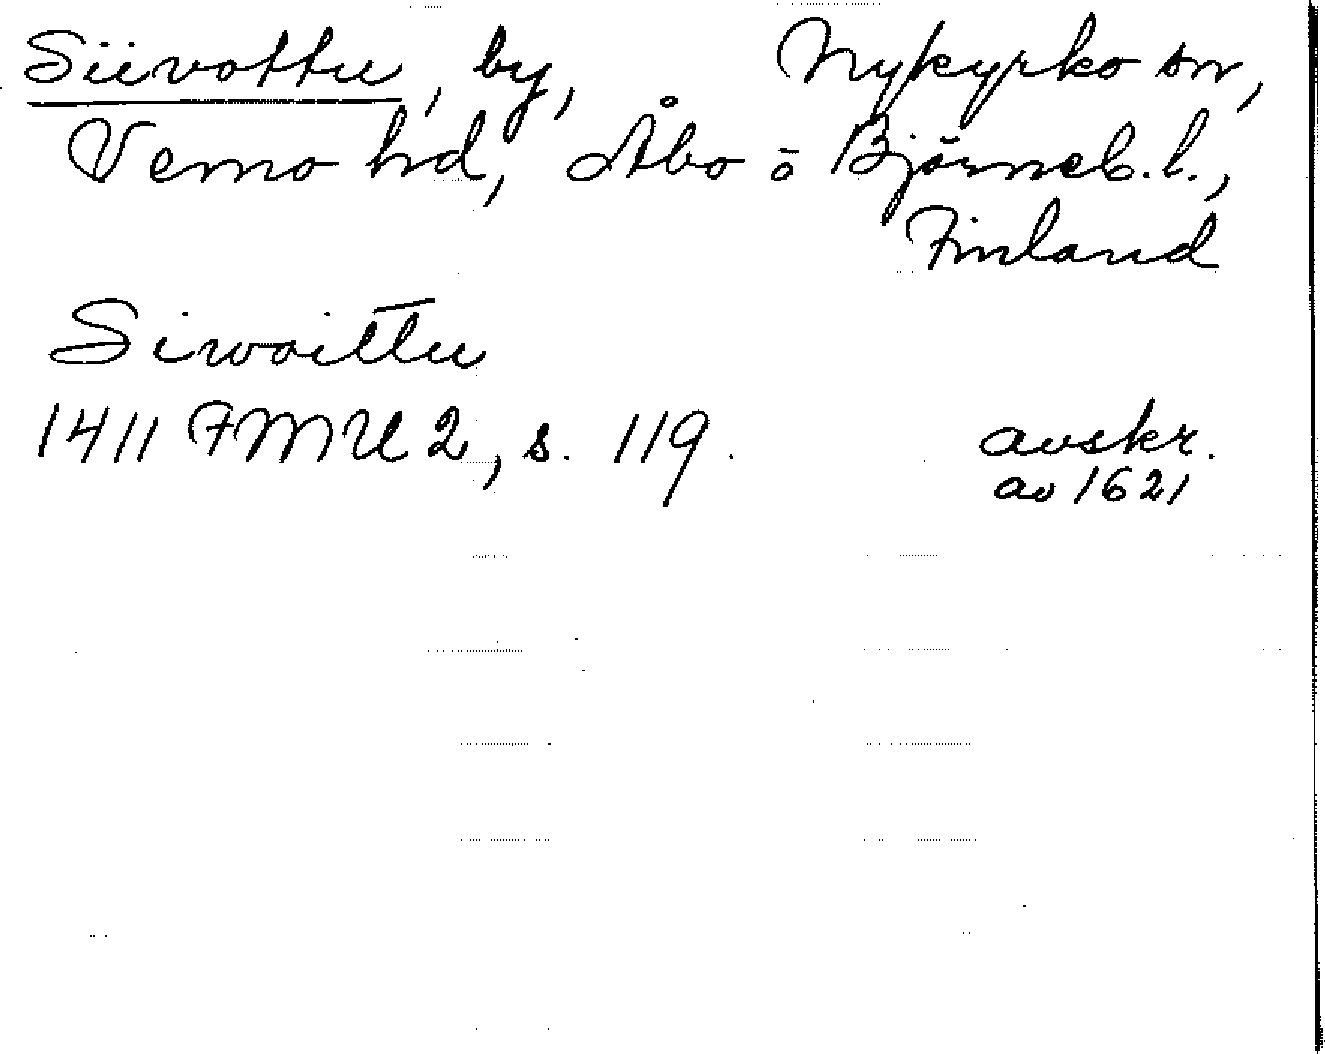 Siivottu, by, Nykyrko sn,
Vemo hd, Åbo o Björneb. l.,
Finland
Siwoittu
1411 FMU 2, s. 119. avskr.
av 1621